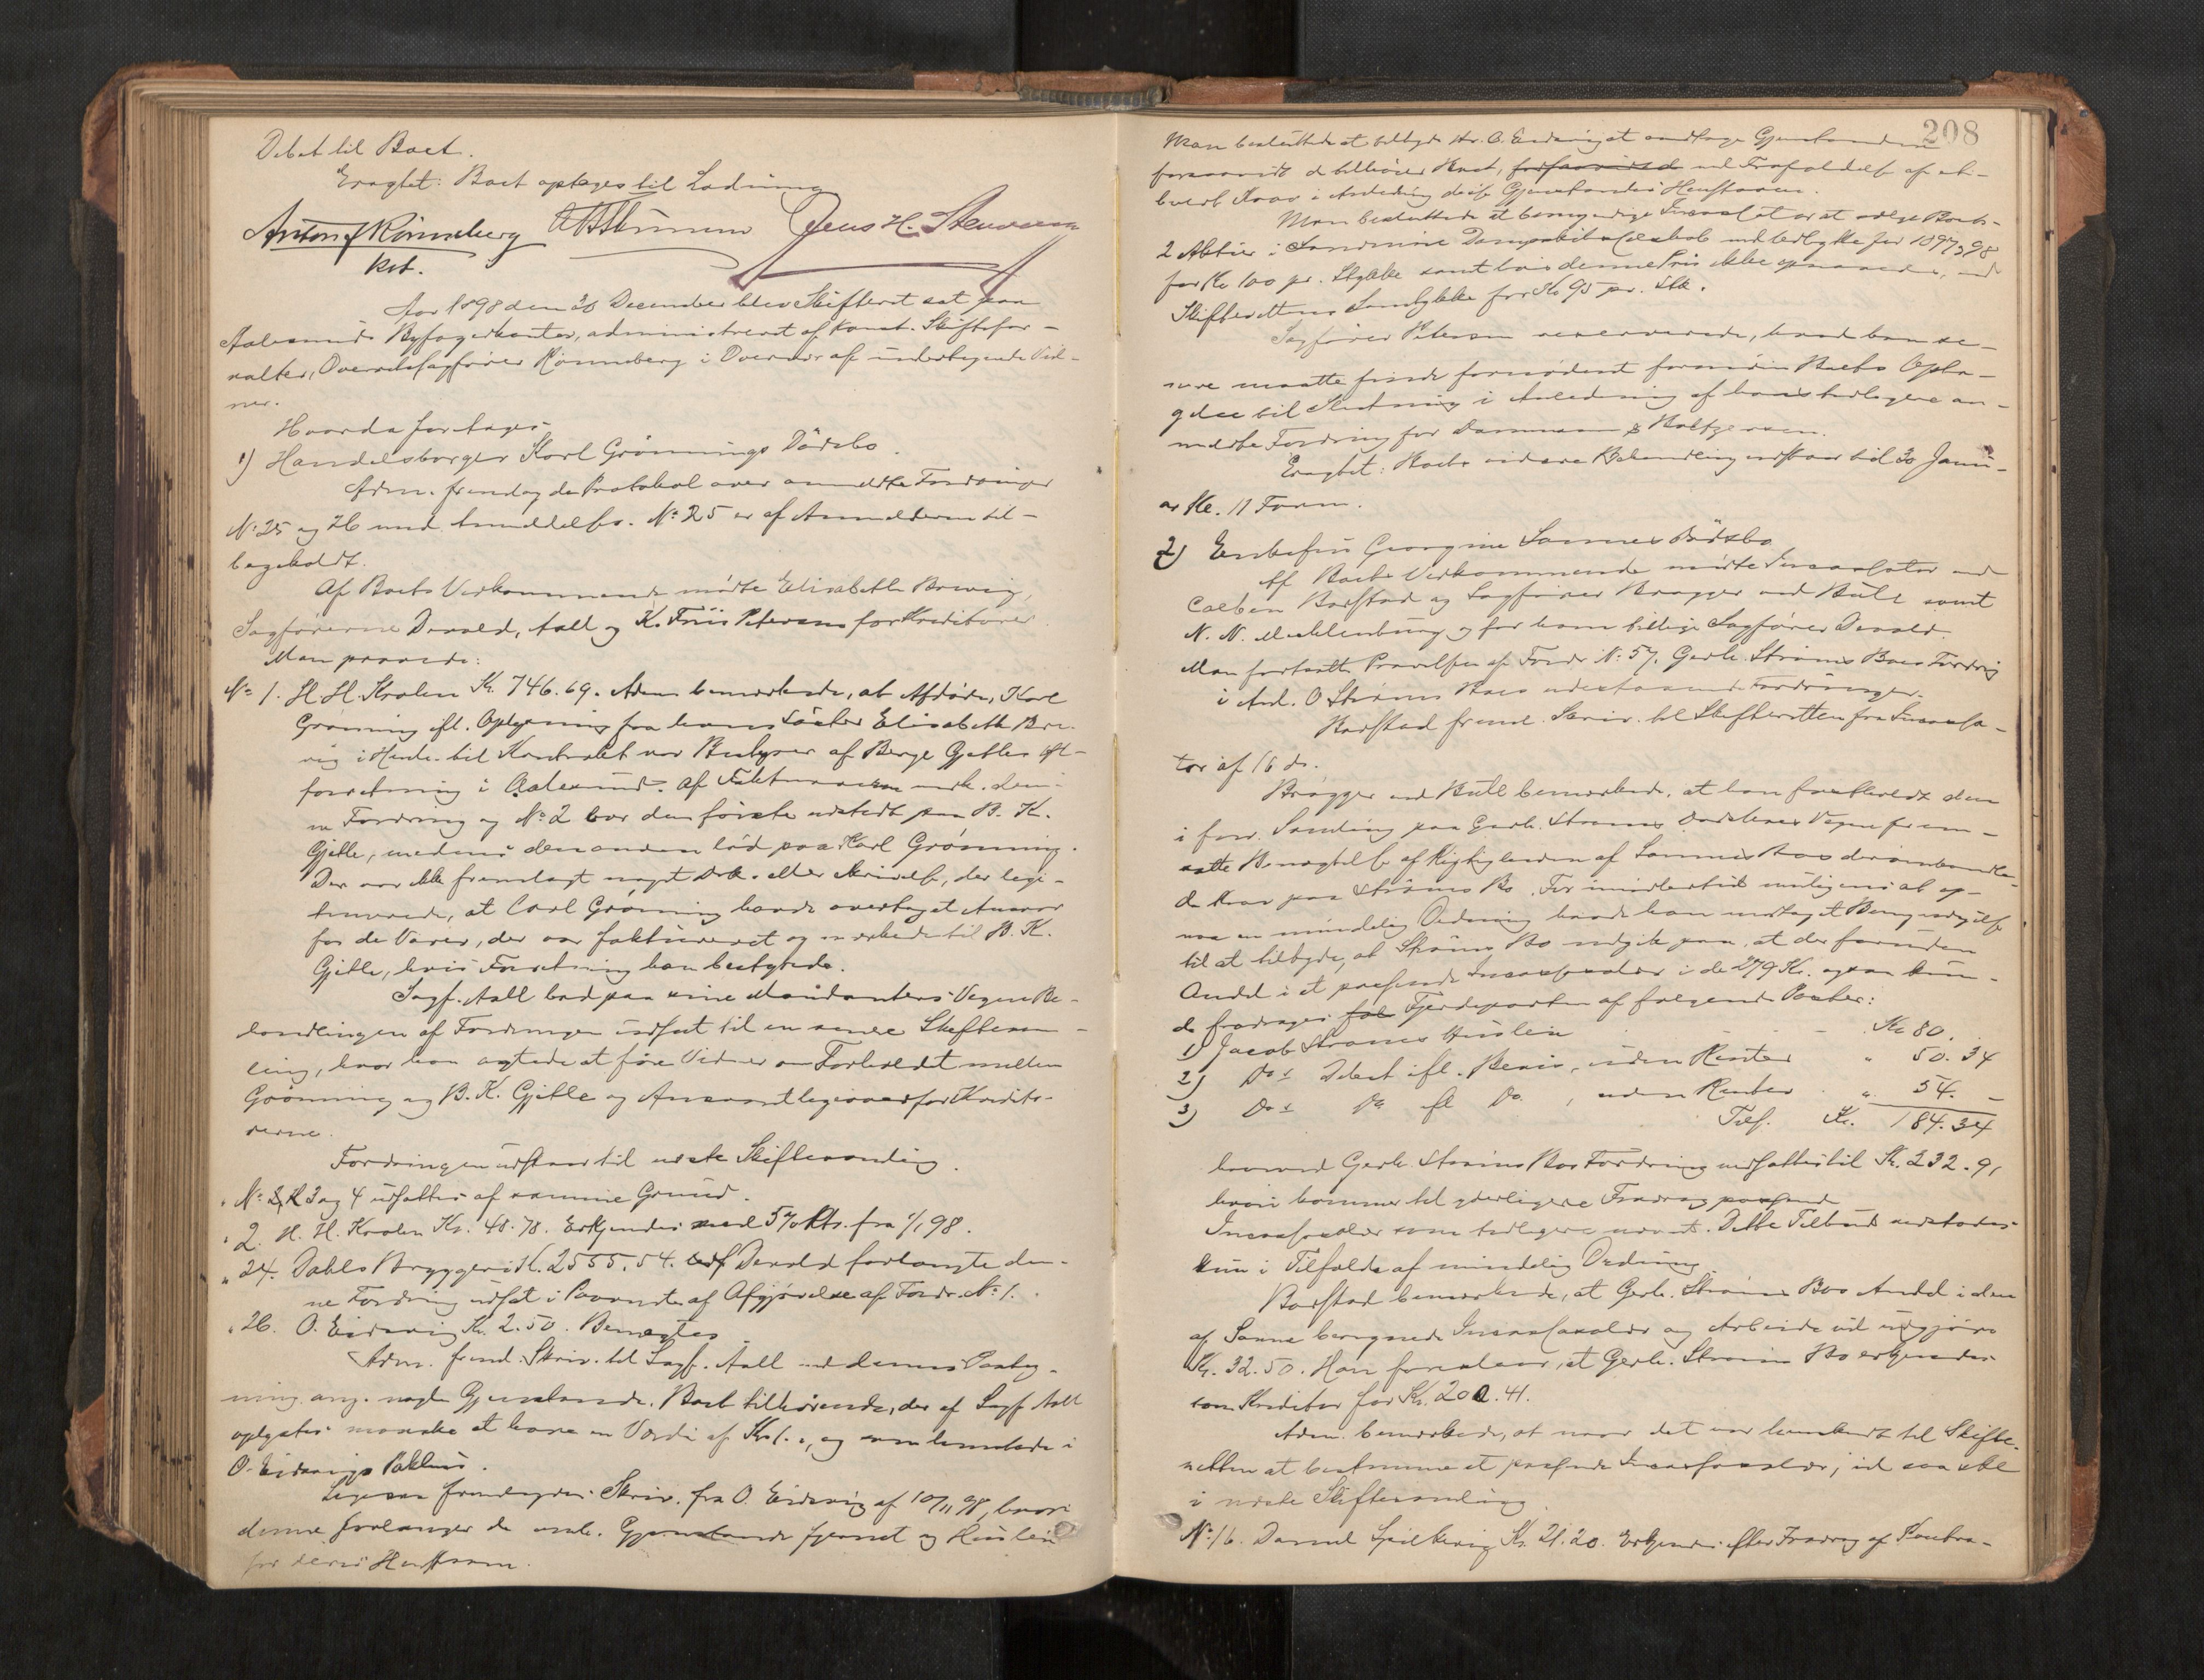 Debet til Boet.
Eragtet: Boet optages til Lodning
Anton Rönneberg Jens H. Stenersen
kst.
Aar 1898 den 30 December blev Skifteret sat paa
Aalesunds Byfogedkontor, administreret af konst. Skiftefor-
valter, Overretssagfører Rönneberg i Overvær af undertegnede Vid-
ner.
Hvorda foretages:
1) Handelsborger Karl Grönnings Dödsbo.
Adm. fremlagde Protokol over anmeldte Fordringer
No 25 og 26 med Anmeldelser. No 25 er af Anmelderen til-
bageholdt.
Af Boets Vedkommende mødte Elisabeth Brevig,
Sagførerne Devold, Aall og K. Friis Petersen for Kreditorer.
Man prøvede:
No 1. H. H. Kvalen Kr. 746.69. Adm. bemærkede, at Afdøde, Karl
Grönning efl. Oplysning fra hans Søster Elisabeth Bre-
vig i Henh. til Kontrakt var Bestyrer af Berge Gjetles
forretning i Aalesund. Af Fakturaerne vedk. den-
ne Fordring og No 2 var den første udstedt paa B. K.
Gjetle, medens den anden lød paa Karl Grönning.
Der var ikke fremlagt noget Dok. eller Skrivelse, der legi-
timerede, at Carl Grönning havde overtaget Ansvar
for de Varer, der var faktureret og til B. K.
Gjetle, hvis Forretning han bestyrede.
Sagf. Aall bad paa sine Mandanters Vegne Be-
handlingen af Fordringen udsat til en senere Skiftesam-
ling, hvor han agtede at føre Vidner om Forholdet mellem
Grönning og B. K. Gjetle og Ansvar ligeoverfor Kredito-
rerne.
Fordringen udstaar til næste Skiftesamling.
No 3 og 4 udsattes af samme Grund.
" 2. H. H. Kvalen Kr. 48.78. Erkjendes med 5% Rtr. fra 98.
" 24. Dahls Bryggeri K. 2555.54. Devold forlangte den-
ne Fordring udsat i Paavente af Afgjørelse af Fordr. No 1.
" 26. O. Eidsvig Kr. 2.50. Benegtes.
Adm. freml. Skriv. til Sagf. Aall med dennes Paateg-
ning ang. nogle Gjenstande, Boet tilhørende, der af Sagf. Aall
opgates maaske at have en Værdi af Kr. 1., og som henstode i
O. Eidsvigs Pakhus.
Ligesaa fremlagdes Skriv. fra O. Eidsvig af 10/11 98, hvori
denne forlanger de omh. Gjenstande fjernet og Husleie
for deres Henstaaen.
208
Man besluttede at tilbyde Hr. O. Eidsvig at modtage Gjenstandene
forsaavidt de tilhører Boet, ved Frafaldelse af et-
hvert Krav i Anledning disse Gjenstandes Henstaaen.
Man besluttede at bemyndige Inkassator at sælge Boets
2 Aktier i Søndmøre Dampskibsselskab med Udbytte for 1897 98
for Kr. 100 pr. Stykke samt hvis denne Pris ikke opnaaedes, med
Skifterettens Samtykke for Kr. 95 pr. Stk.
Sagfører Petersen reserverede, hvad han se-
nere maatte finde fornødent forinden Boets Opta-
gelse til Slutning i Anledning af hans tidligere an-
meldte Fordring for Dammann &
Eragtet: Boets videre Behandling udstaar til 30 Janu-
ar Kl. 11 Form.
2) Enkefru Georgine Sannes Dödsbo
Af Boets Vedkommende mødte Inkassator ved
Barstad og Sagfører Brøgger ved Bull samt
N. N. Mecklenburg og for ham tillige Sagfører Devold.
Man fortsatte Prøvelsen af Fordr. No 57. Gerh. Strøms Boes Fordring
i Anl. O. Strøms Boes udestaaende Fordringer.
Barstad freml. Skriv. til Skifteretten fra Inkassa-
tor af 16 ds.
Brøgger ved Bull bemærkede, at han fastholdt den
i forr. Samling paa Gerh. Strøms Dødsboes Vegne frem-
satte Benegtelse af Rigtigheden af Sannes Boes
de Krav paa Strøms Bo. For imidlertid muligens at op-
naa en mindelig Ordning havde han modtaget Bemyndigelse
til at tilbyde, at Strøms Bo indgik paa, at der foruden
Andel i et passende Inkassosalær i de 279 Kr. ogsaa kun-
de fradrages Fjerdeparten af følgende Poster:
1) Jacob Strøms Husleie Kr. 80.
2) Do s Debet ifl. Bevis, uden Renter " 50.34
3) Do s Do ifl Do , uden Renter " 54. -
Tils. Kr. 184.34
hvorved Gerh. Strøms Boes Fordring nedsattes til Kr. 232.91
hvori kommer til yderligere Fradrag passende
Inkassosalær som tidligere nævnt. Dette Tilbud vedstodes
kun i Tilfælde af mindelig Ordning.
Barstad bemærkede, at Gerh. Strøms Boes Andel i den
af Sanne beregnede Inkassosalær og Arbeide vil udgjøre
Kr. 32.50. Han foreslaar, at Gerh. Strøms Bo erkjendes
som Kreditor for Kr. 200.41.
Adm. bemærkede, at naar det var henskudt til Skifte-
retten at bestemme et passende Inkassosalær, vil saa ske
i næste Skiftesamling.
No 16. Daniel Spilkevig Kr. 21.20. Erkjendes efter Fradrag af Kontra-